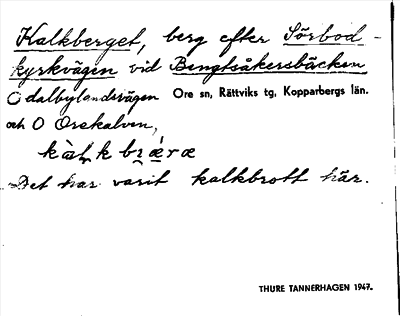 Kalkberget, berg efter Sörbod-
kyrkvägen vid Bengtsåkersbäcken
Ödalbylandsvägen Ore sn, Rättviks tg, Kopparbergs län.
och O Orekalven,
kàlk bɪ ǽræ
Det har varit kalkbrott här.
THURE TANNERHAGEN 1947.